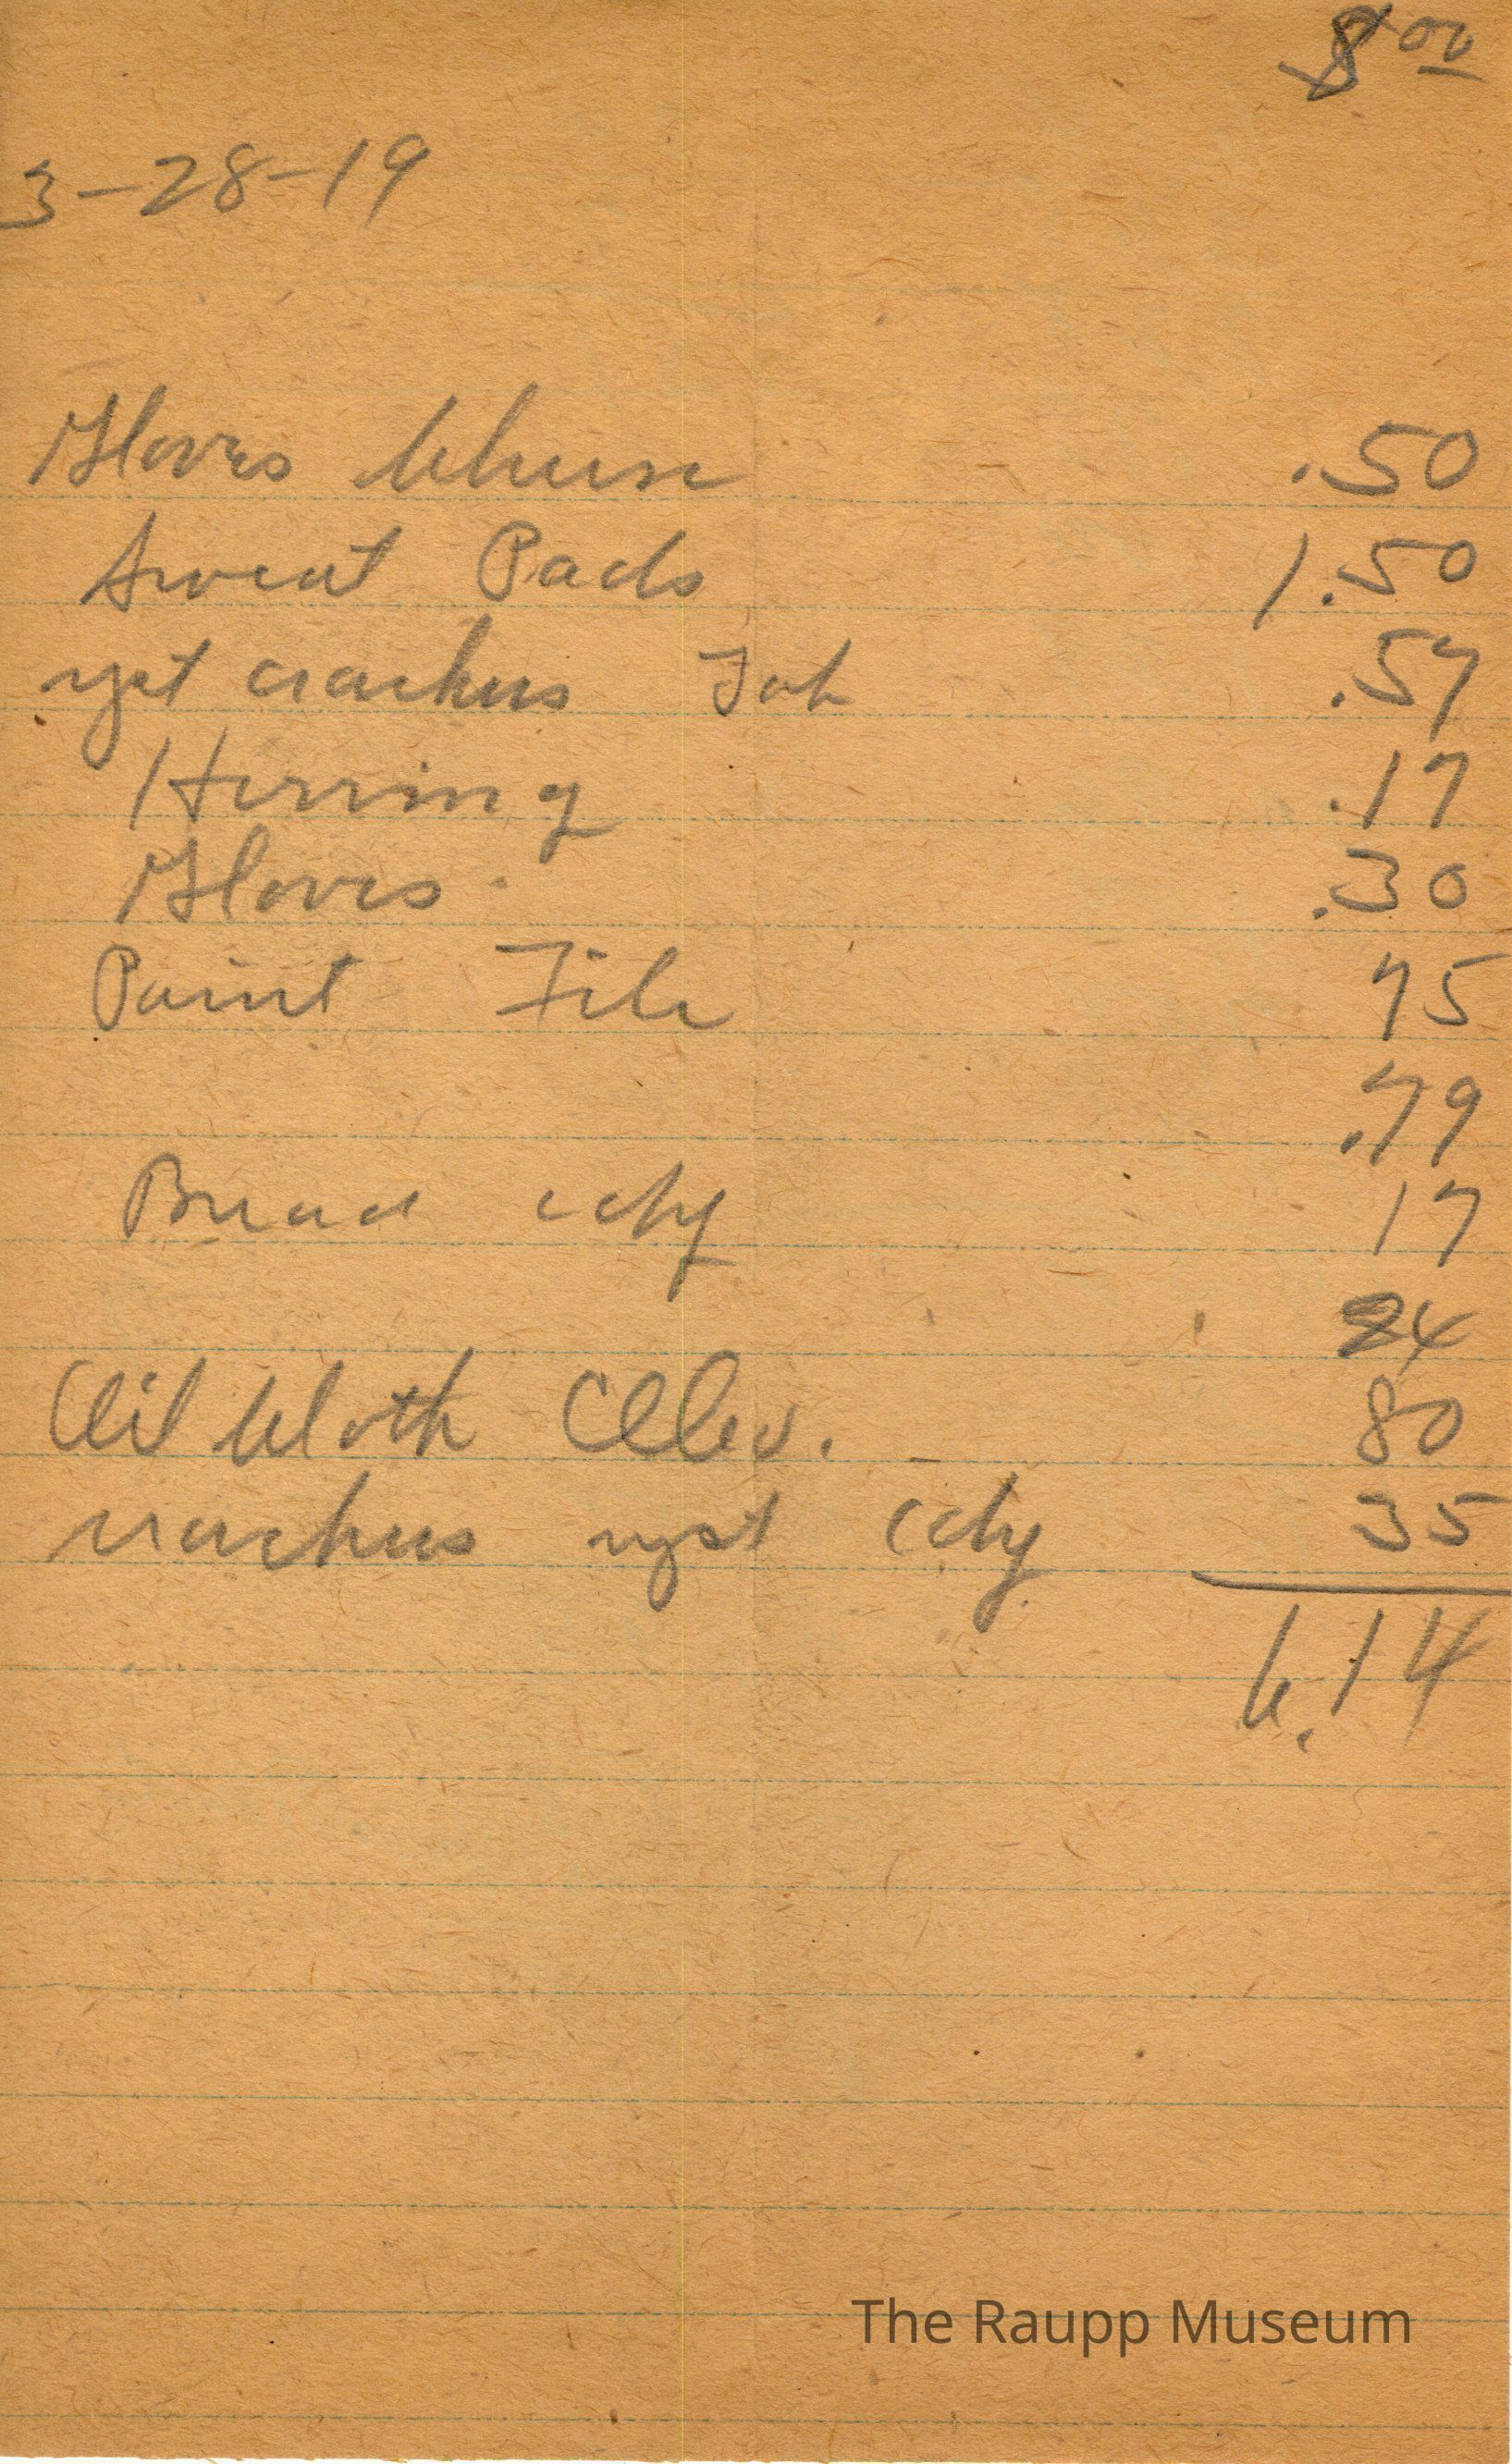 8 00
3-28-19
Gloves Cheese .50
Sweat Pads 1.50
yst crackers Tob .57
Herring .17
Gloves .30
Paint File 75
.79
Bread cdy 17
24
Oil Cloth 80
crackers yst cdy 35
6.14
The Raupp Museum